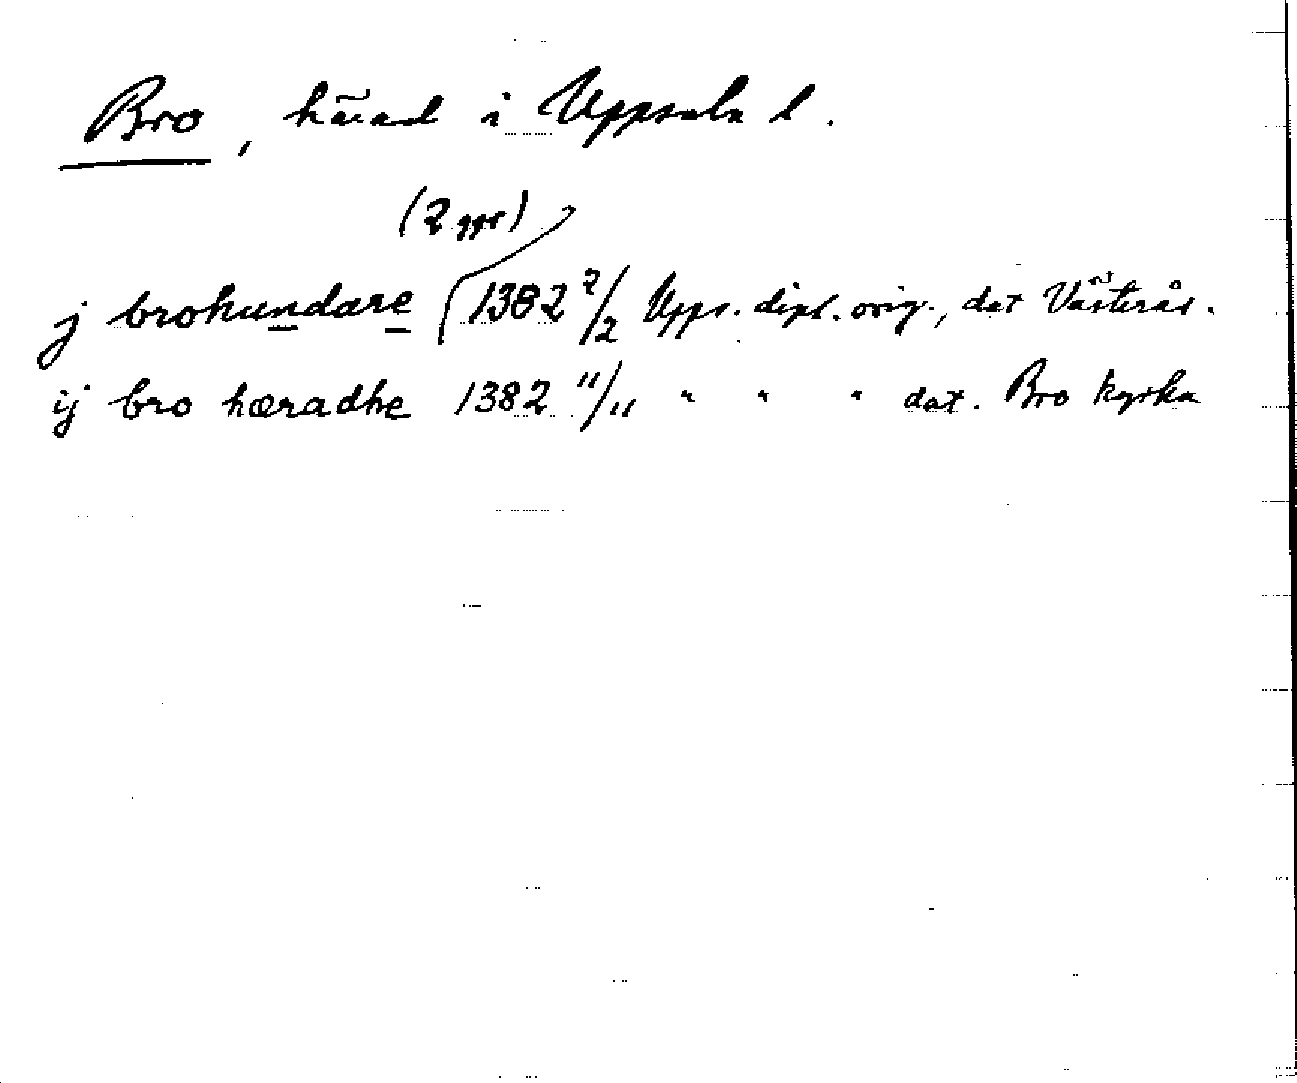 Bro, härad i Uppsala l.
(2 ggr)
j brohundare 1382 2/2 Upps. dipl. orig., dat Västerås.
ij bro hæradhe 1382 11/11 " " " dat. Bro kyrka